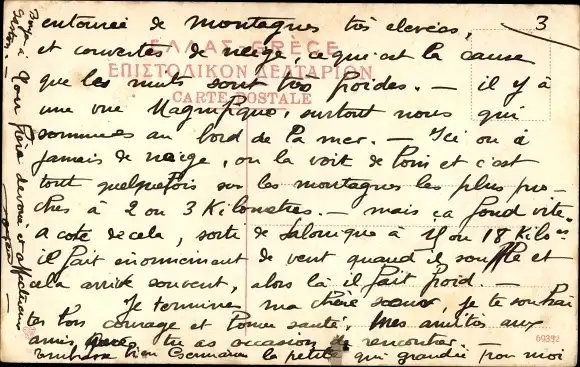 3
entourée de montagnes très elevées,
et couvertes de neige, ce qui est la cause
ΕΛΛΑΣ-GRÈCE
que les nuits sont très froides. — il y à
ΕΠΙΣΤΟΛΙΚΟΝ ΔΕΛΤΑΡΙΟΝ
une vue Magnifique, surtout nous qui
CARTE POSTALE
sommes au bord de la mer. — Ici on à
jamais de neige, on la voit de loin et c'est
tout quelquefois sur les montagnes les plus pro-
ches à 2 ou 3 Kilomètres. — mais ça fond vite.
a coté de cela, sorti de Salonique à 15 ou 18 Kilos
il fait enormement de vent quand il souffle et
cela arrive souvent, alors là il fait froid. —
Je termine ma chère sœur, je te souhai
tes bon courage et bonne santé. Mes amitiés aux
amis que tu as occasion de rencontrer —
Embrasse bien Germaine la petite qui grandie pour moi
69332
Ton frère devoué et affectueux